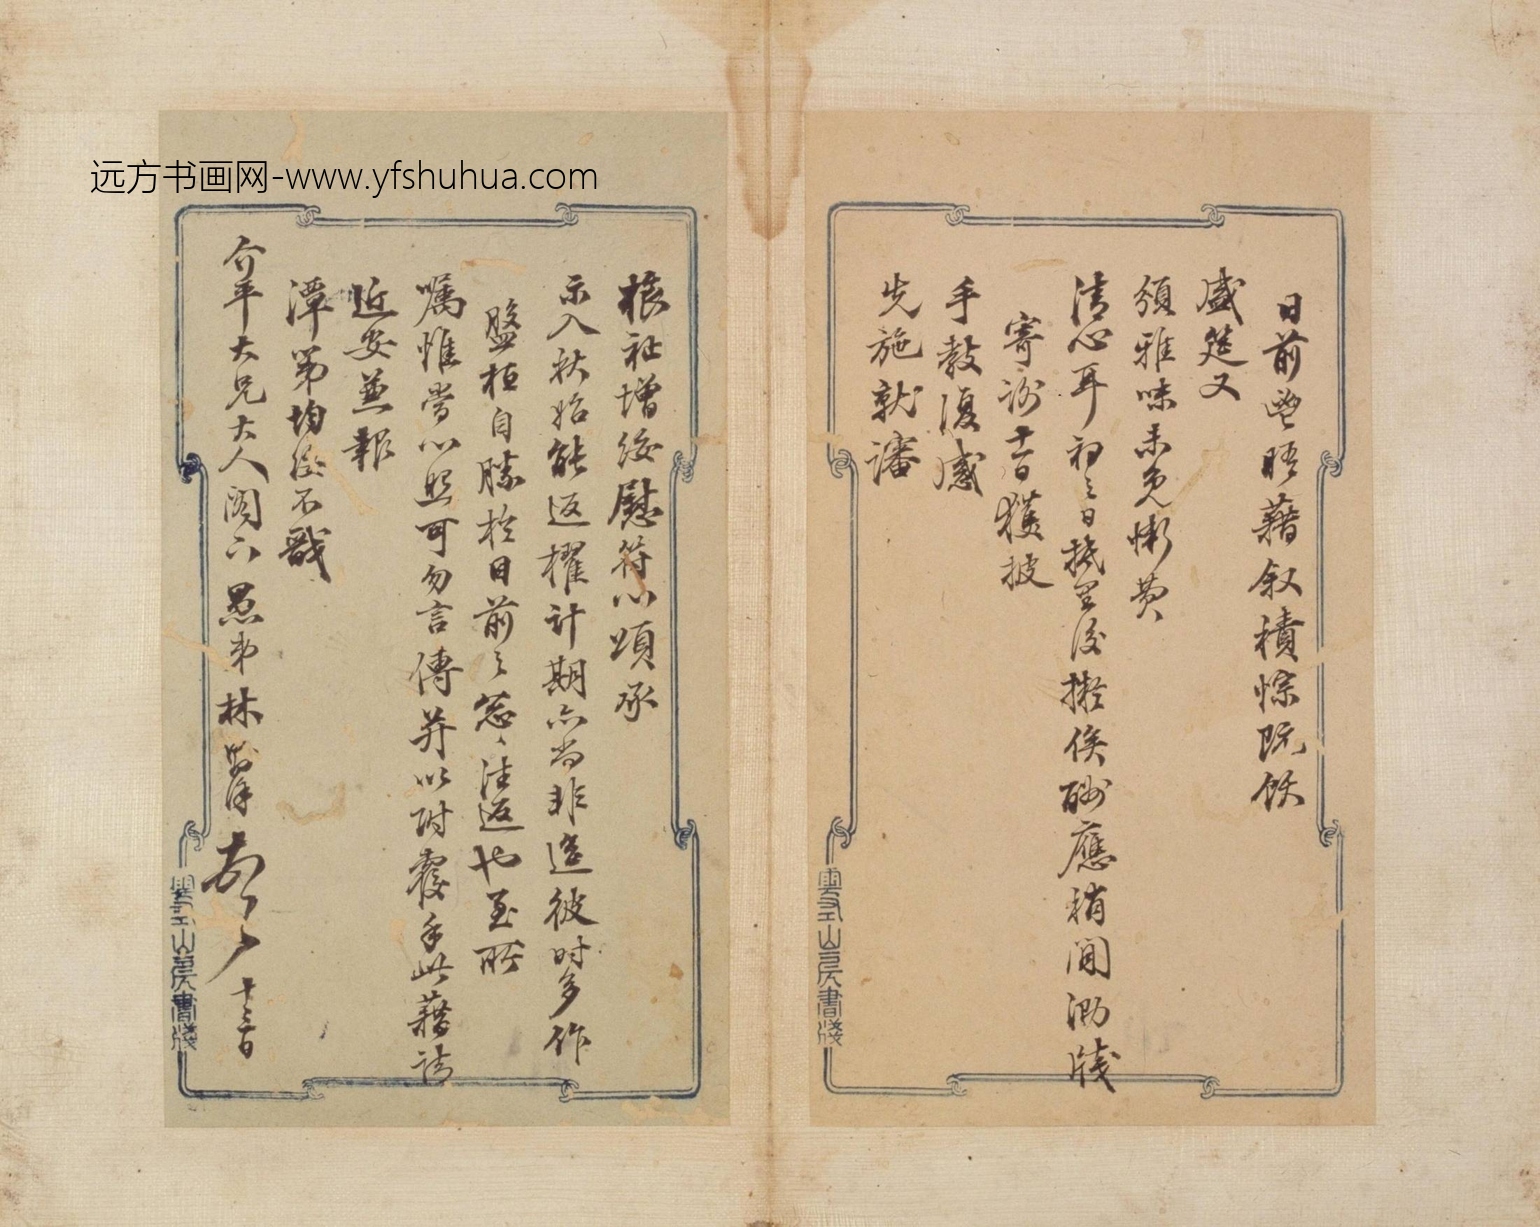 远方书画网-www.yfshuhua.com
日前晤藉叙積悰既飫
盛筵又
頒雅味未免慚費
清心耳初三日抵里後擬俟酬應稍閒泐牋
寄謝十一日獲披
手教復感
先施就審
祉增綏慰符心頌承
示入秋始能返櫂計期亦尚非遥彼時多作
盤桓自勝於日前之怱怱往返也至所
囑惟當心照可勿言傳并以附覆手此藉請
近安並報
潭第均綏不戩
介平大兄大人閣下愚弟林頓首十三日
粵 山房書牋
粵 山房書牋